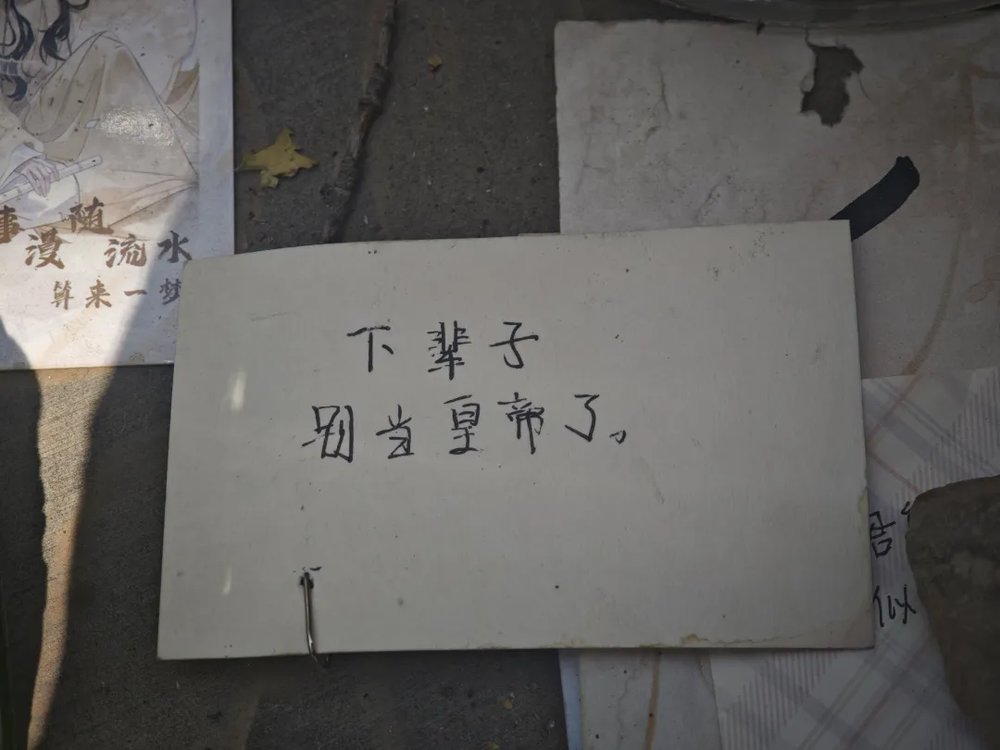 事 随
漫 流水
算来一梦
下辈子
别当皇帝了。
居
似